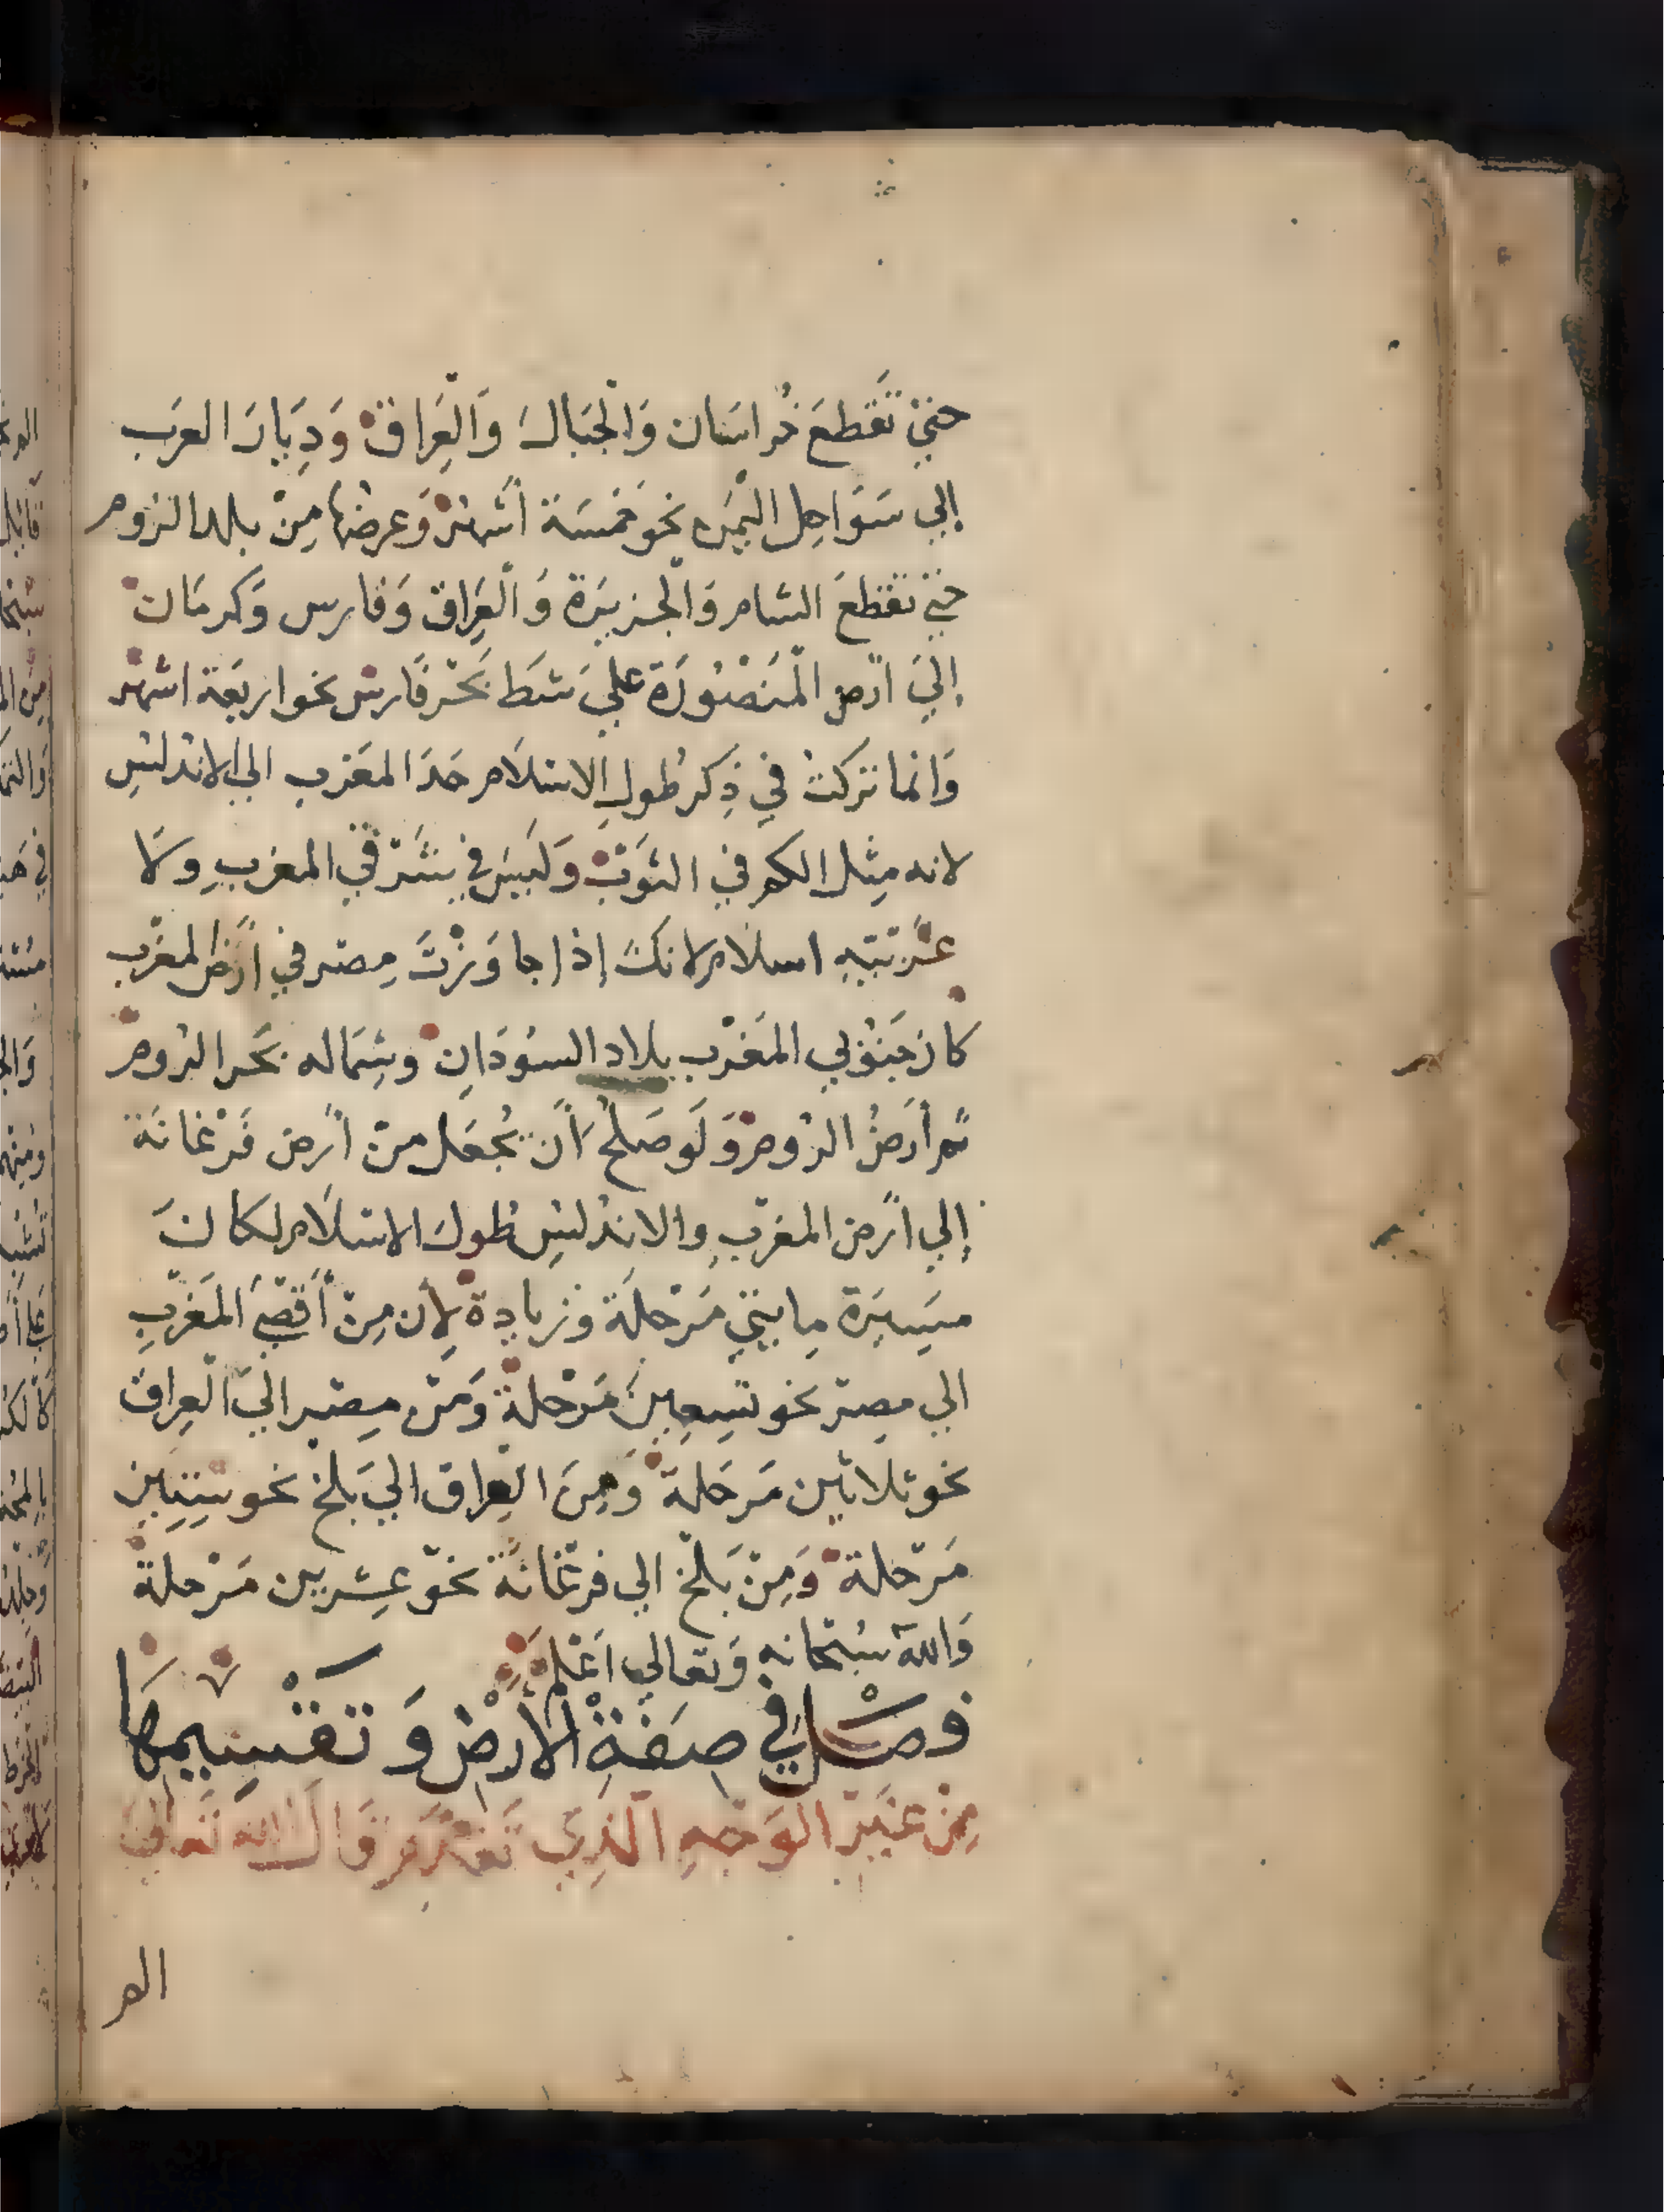 حتي تَقطعَ خُراسَان وَالجبَالَ وَالْعِرَاقَ وَدِيَارَ العرَب
إلي سَوَاحِل اليَمَن نحوَ خمسَة أشهُرْ وَعرضها مِنْ بلد الرُوم
حتي تقطعَ الشام وَالجزيرَة وَالْعِرَاق وَفارس وَكرمَان
إليَ أرض المَنصُورَة عليَ شط بَحْر فَارس نحو اربَعة اشهُر
وَانما تركتُ في ذِكر طُول الاسْلَام حَدَ المغرب الي الاندلسِ
لانه مِثل الكم في الثوَبْ وَلَيسَ في شَرْقي المغربِ وَلَا
غَرْبَيهِ اسلَام لانكَ إذا جاوَزْتَ مِصر في أرَض المغرب
كان جَنوُبي المَغْرب بلاد السُودَانِ وشِمَاله بحَر الرُوم
ثم أرضُ الرُوم وَلَو صَلحُ أن يُجعَل من أرض فَرْغَانَة
إلي أرض المغرب والاندلسِ طولَ الاسْلَام لكانَ
مسِيرَة مايتي مَرْحَلَة وَزيادة لِأن مِنْ أقصيَ المَغربِ
الي مصر نحو تسِعِينَ مَرْحَلة وَمَن مصر اليَ الْعِراق
نحو ثلاثين مَرحَلة وَمِنَ العِراق اليَ بَلخ نحو سِتِين
مَرْحَلة وَمِنْ بَلْخ الي فرغَانَة نحوَ عِشرين مَرْحلةً
وَاللهُ سُبْحَانه وَتعالي اعْلم
فصْل فِي صِفَةِ الأرْضِ وَتقْسِيمِهَا
مِنْ غَيْرِ الوَجْهِ الَّذِي تَقَدَّمَ قَالَ الله تَعَاليَ
الم